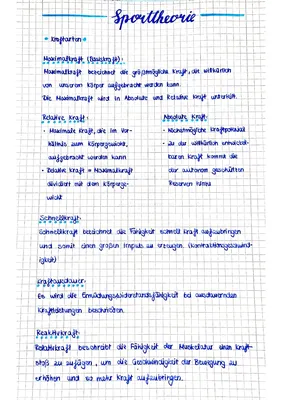 Sporttheorie
* Kraftarten *
Maximalkraft (Basiskraft):
Maximalkraft bezeichnet die größtmögliche Kraft, die willkürlich
von unserem Körper aufgebracht werden kann.
Die Maximalkraft wird in Absolute und Relative Kraft unterteilt.
Relative Kraft:
- Maximale Kraft, die im Ver-
hältnis zum Körpergewicht,
aufgebracht werden kann
- Relative Kraft = Maximalkraft
dividiert mit dem Körperge-
wicht
Absolute Kraft:
- Höchstmögliche Kraftpotenzial
- Zu der willkürlich entwickel-
baren Kraft kommt die
der autonom geschützten
Reserven hinzu
Schnellkraft:
Schnellkraft bezeichnet die Fähigkeit schnell Kraft aufzubringen
und somit einen großen Impuls zu erzeugen. (Kontraktionsgeschwin-
digkeit)
Kraftausdauer:
Es wird die Ermüdungswiderstandsfähigkeit bei ausdauernden
Kraftleistungen beschrieben.
Reaktivkraft:
Reaktivkraft beschreibt die Fähigkeit der Muskulatur einen Kraft-
stoß zu zufügen, um die Geschwindigkeit der Bewegung zu
erhöhen und so mehr Kraft aufzubringen.